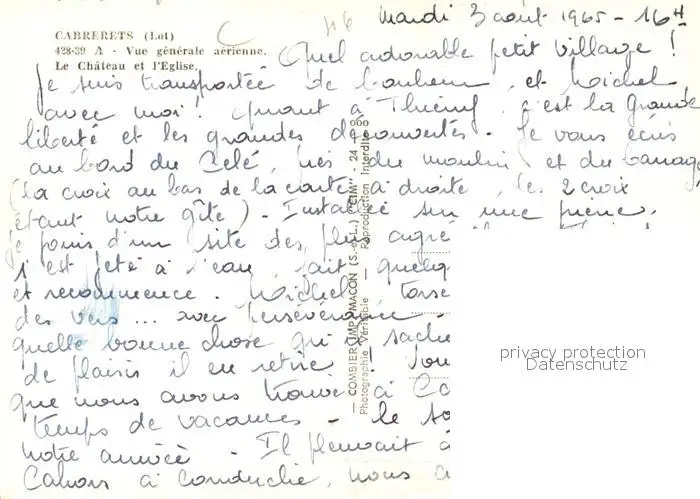 CABRERETS (Lot)
428-39 A - Vue générale aérienne.
Le Château et l'Eglise.
46
Mardi 3 août 1965 - 16 H
Quel adorable petit village !
Je suis transportée de bonheur, et Michel
avec moi ! Quant à Thierry, c'est la grande
liberté et les grandes découvertes. Je vous écris
au bord du Celé, près du moulin et du barrage
(la croix au bas de la carte à droite, les 2 croix
étant notre gîte). Installée sur une pierre,
je jouis d'un site des plus agré
s'est jeté à l'eau, fait quelq
et recommence. Michel
des vers ... avec persévérance -
quelle bonne chose qu'il sache
de plaisir il en retire.
que nous avons trouvé à Ca
temps de vacances - le so
notre arrivée. Il pleuvait à
Cahors à conduche, nous a
— COMBIER IMP. MACON (S.-&-L.) "CIM" - 24 - 000
Photographie Véritable — Reproduction Interdite
privacy protection
Datenschutz